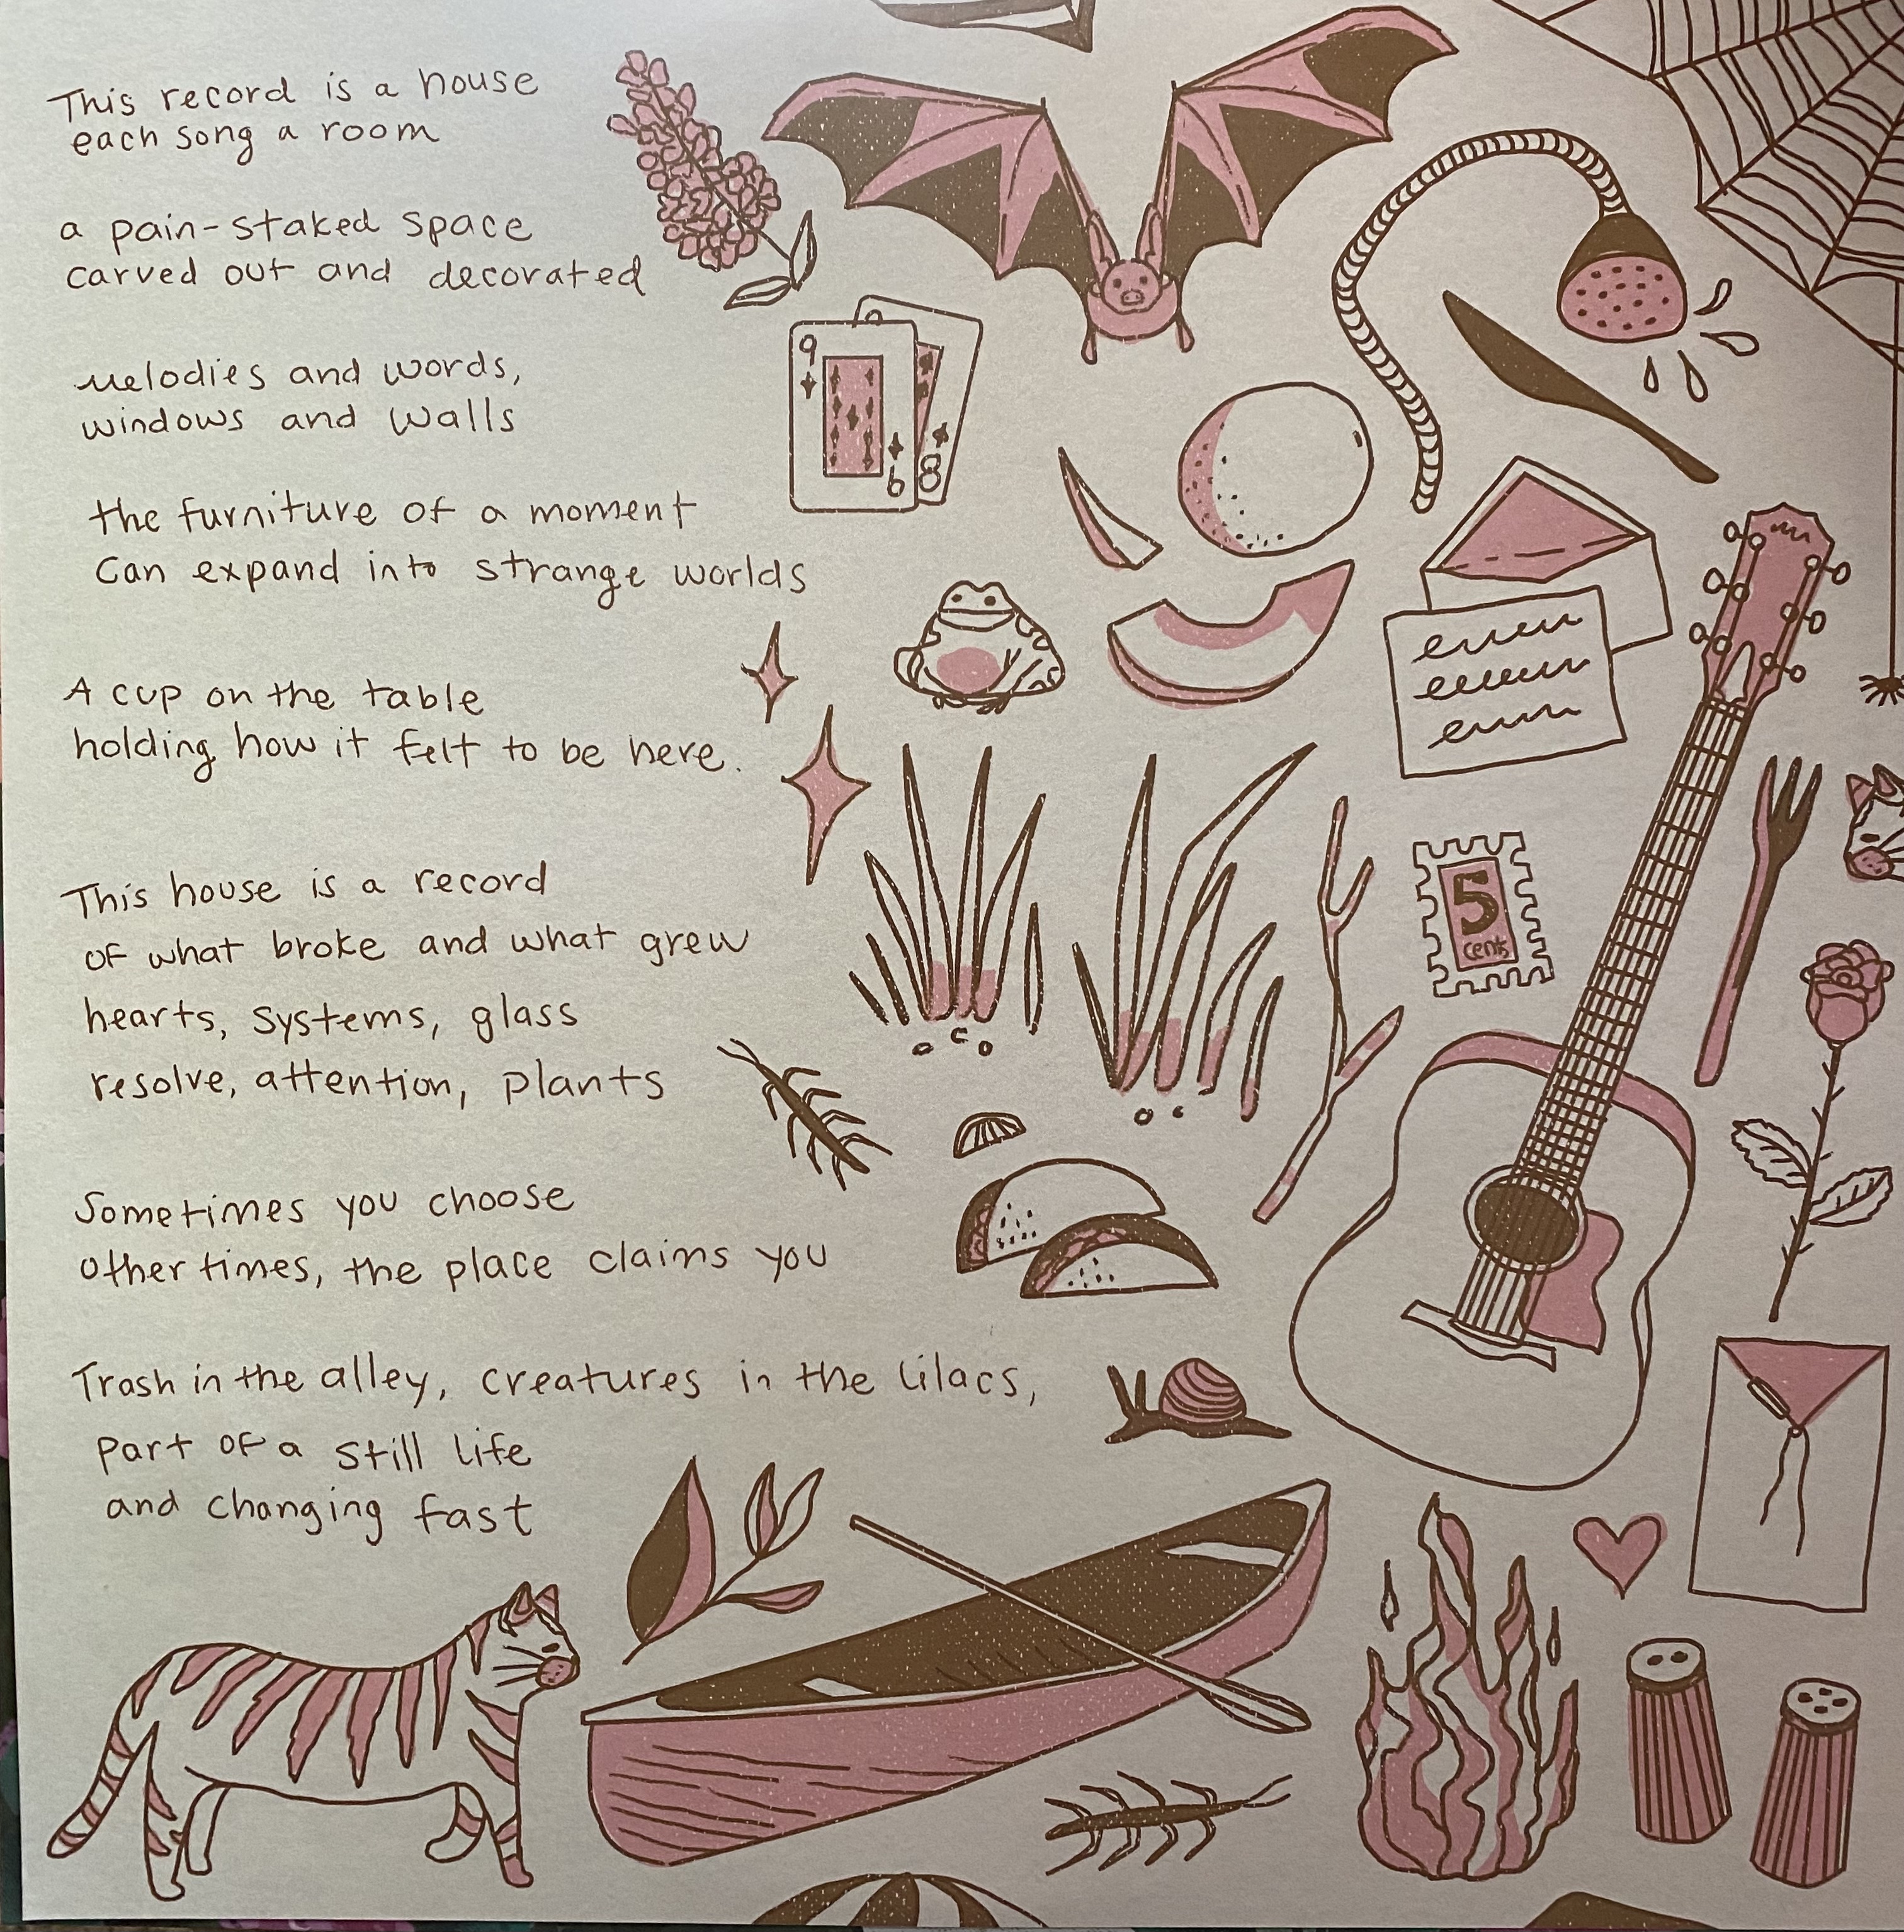 This record is a house
each song a room
a pain-staked space
carved out and decorated
melodies and words,
windows and walls
the furniture of a moment
can expand into strange worlds
A cup on the table
holding how it felt to be here.
This house is a record
of what broke and what grew
hearts, systems, glass
resolve, attention, plants
Sometimes you choose
other times, the place claims you
Trash in the alley, creatures in the lilacs,
part of a still life
and changing fast
9
9
8
5
cents